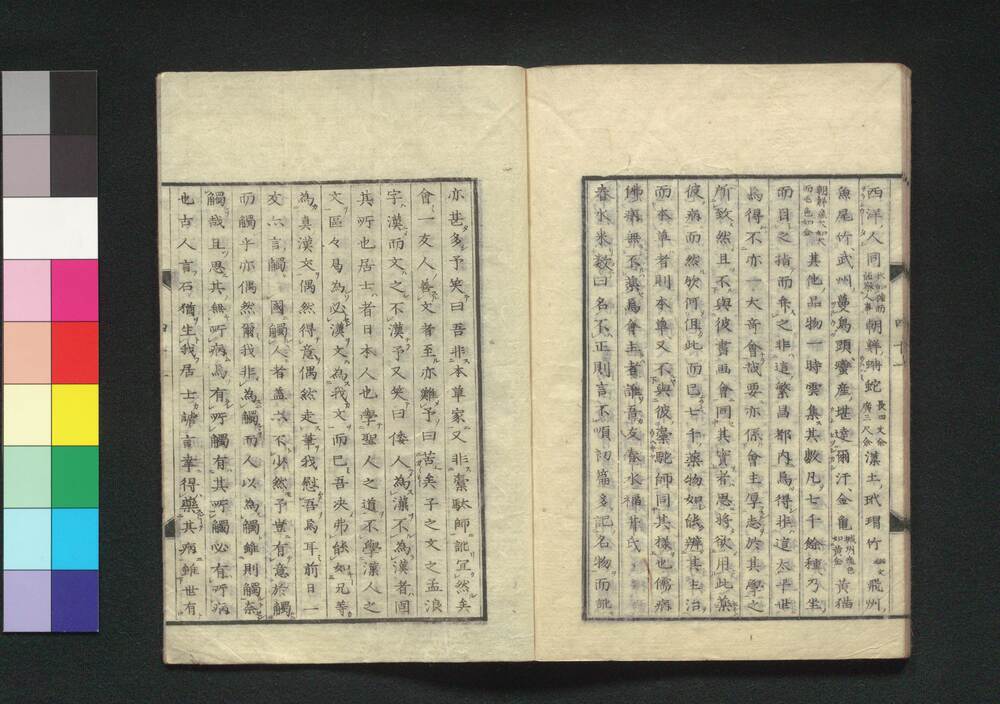 西洋人同朝鮮蚺蛇長四丈余廣三尺余漢土玳瑁竹飛州
魚尾竹武州蔓烏頭蠻産堪達爾汗金龜如黄金黄猫
朝鮮其他品物一時雲集其數凡七千餘種乃坐
而目之指而弁之非這繁昌都内焉得非這太平世
焉得不亦一大奇會誠要亦係會主厚志於其學之
所致然且不與彼書画會同其實者思將欲用此藥
彼病而然欤何但此而已七千藥物如能辨其主治
而本草者則本草又不與彼藥駝師同其樣也傷病
佛藥無不/會主者誰意友春水福井氏
春水米數曰名不正則言不順訒菴多記名物而訛
亦甚多予笑曰吾非本草家又非藁駄師訛冝然矣
會一友人善文者至亦難予曰苦矣子之文之孟浪
字漢而文之不漢予又笑曰倭人為漢不為漢者固
其所也居士者日本人也學聖人之道不學漢人之
文區々焉為必漢文為我文而已吾夫弗能如兄等
為真漢文偶然得意偶然走筆我慰吾焉耳前日一
友亦言觸國觸人者蓋亦不少然予豈有意於觸
而觸乎亦偶然爾我非為觸而人以為觸雖則觸奈
觸哉且思其無所病焉有所觸有其所觸必有所病
也古人言石猶生我居士謔言幸得藥其病雖世有